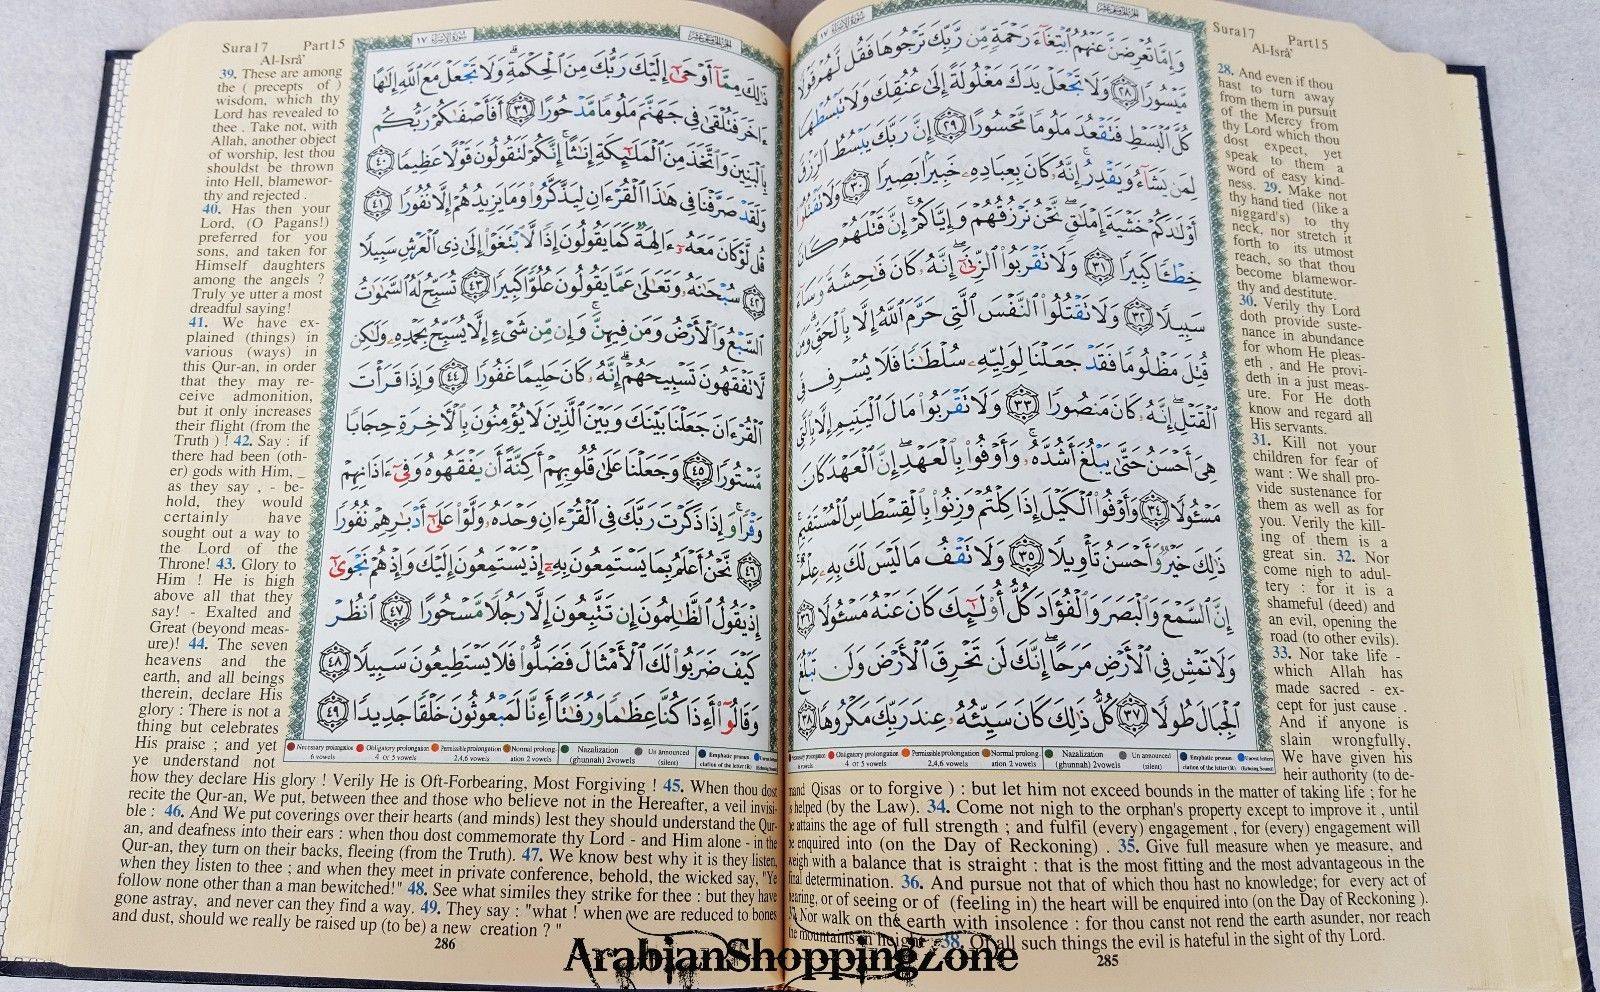 Sura17 Part15
Al-Isrâ'
سورة الإسراء ١٧
وَإِمَّا تُعْرِضَنَّ عَنْهُمُ ٱبْتِغَآءَ رَحْمَةٍ مِّن رَّبِّكَ تَرْجُوهَا فَقُل لَّهُمْ قَوْلًا
مَّيْسُورًا ٢٨ وَلَا تَجْعَلْ يَدَكَ مَغْلُولَةً إِلَىٰ عُنُقِكَ وَلَا تَبْسُطْهَا
كُلَّ ٱلْبَسْطِ فَتَقْعُدَ مَلُومًا مَّحْسُورًا ٢٩ إِنَّ رَبَّكَ يَبْسُطُ ٱلرِّزْقَ
لِمَن يَشَآءُ وَيَقْدِرُ إِنَّهُۥ كَانَ بِعِبَادِهِۦ خَبِيرًۢا بَصِيرًا ٣٠ وَلَا تَقْتُلُوٓا۟
أَوْلَٰدَكُمْ خَشْيَةَ إِمْلَٰقٍ نَّحْنُ نَرْزُقُهُمْ وَإِيَّاكُمْ إِنَّ قَتْلَهُمْ كَانَ
خِطْـًٔا كَبِيرًا ٣١ وَلَا تَقْرَبُوا۟ ٱلزِّنَىٰٓ إِنَّهُۥ كَانَ فَٰحِشَةً وَسَآءَ
سَبِيلًا ٣٢ وَلَا تَقْتُلُوا۟ ٱلنَّفْسَ ٱلَّتِى حَرَّمَ ٱللَّهُ إِلَّا بِٱلْحَقِّ وَمَن
قُتِلَ مَظْلُومًا فَقَدْ جَعَلْنَا لِوَلِيِّهِۦ سُلْطَٰنًا فَلَا يُسْرِف فِّى
ٱلْقَتْلِ إِنَّهُۥ كَانَ مَنصُورًا ٣٣ وَلَا تَقْرَبُوا۟ مَالَ ٱلْيَتِيمِ إِلَّا بِٱلَّتِى
هِىَ أَحْسَنُ حَتَّىٰ يَبْلُغَ أَشُدَّهُۥ وَأَوْفُوا۟ بِٱلْعَهْدِ إِنَّ ٱلْعَهْدَ كَانَ
مَسْـُٔولًا ٣٤ وَأَوْفُوا۟ ٱلْكَيْلَ إِذَا كِلْتُمْ وَزِنُوا۟ بِٱلْقِسْطَاسِ ٱلْمُسْتَقِيمِ
ذَٰلِكَ خَيْرٌ وَأَحْسَنُ تَأْوِيلًا ٣٥ وَلَا تَقْفُ مَا لَيْسَ لَكَ بِهِۦ عِلْمٌ
إِنَّ ٱلسَّمْعَ وَٱلْبَصَرَ وَٱلْفُؤَادَ كُلُّ أُو۟لَٰٓئِكَ كَانَ عَنْهُ مَسْـُٔولًا ٣٦
وَلَا تَمْشِ فِى ٱلْأَرْضِ مَرَحًا إِنَّكَ لَن تَخْرِقَ ٱلْأَرْضَ وَلَن تَبْلُغَ
ٱلْجِبَالَ طُولًا ٣٧ كُلُّ ذَٰلِكَ كَانَ سَيِّئُهُۥ عِندَ رَبِّكَ مَكْرُوهًا ٣٨
28. And even if thou
hast to turn away
from them in pursuit
of the Mercy from
thy Lord which thou
dost expect, yet
speak to them a
word of easy kind-
ness. 29. Make not
thy hand tied (like a
niggard's) to thy
neck, nor stretch it
forth to its utmost
reach, so that thou
become blamewor-
thy and destitute.
30. Verily thy Lord
doth provide suste-
nance in abundance
for whom He pleas-
eth , and He provi-
deth in a just meas-
ure. For He doth
know and regard all
His servants.
31. Kill not your
children for fear of
want : We shall pro-
vide sustenance for
them as well as for
you. Verily the kill-
ing of them is a
great sin. 32. Nor
come nigh to adul-
tery : for it is a
shameful (deed) and
an evil, opening the
road (to other evils).
33. Nor take life -
which Allah has
made sacred - ex-
cept for just cause .
And if anyone is
slain wrongfully,
We have given his
heir authority (to de-
mand Qisas or to forgive ) : but let him not exceed bounds in the matter of taking life ; for he
is helped (by the Law). 34. Come not nigh to the orphan's property except to improve it , until
he attains the age of full strength ; and fulfil (every) engagement , for (every) engagement will
be enquired into (on the Day of Reckoning) . 35. Give full measure when ye measure, and
weigh with a balance that is straight : that is the most fitting and the most advantageous in the
final determination. 36. And pursue not that of which thou hast no knowledge; for every act of
hearing, or of seeing or of (feeling in) the heart will be enquired into (on the Day of Reckoning ).
37. Nor walk on the earth with insolence : for thou canst not rend the earth asunder, nor reach
the mountains in height. 38. Of all such things the evil is hateful in the sight of thy Lord.
285
Sura17 Part15
Al-Isrâ'
سورة الإسراء ١٧
ذَٰلِكَ مِمَّآ أَوْحَىٰٓ إِلَيْكَ رَبُّكَ مِنَ ٱلْحِكْمَةِ وَلَا تَجْعَلْ مَعَ ٱللَّهِ إِلَٰهًا
ءَاخَرَ فَتُلْقَىٰ فِى جَهَنَّمَ مَلُومًا مَّدْحُورًا ٣٩ أَفَأَصْفَىٰكُمْ رَبُّكُم
بِٱلْبَنِينَ وَٱتَّخَذَ مِنَ ٱلْمَلَٰٓئِكَةِ إِنَٰثًا إِنَّكُمْ لَتَقُولُونَ قَوْلًا عَظِيمًا ٤٠
وَلَقَدْ صَرَّفْنَا فِى هَٰذَا ٱلْقُرْءَانِ لِيَذَّكَّرُوا۟ وَمَا يَزِيدُهُمْ إِلَّا نُفُورًا ٤١
قُل لَّوْ كَانَ مَعَهُۥٓ ءَالِهَةٌ كَمَا يَقُولُونَ إِذًا لَّٱبْتَغَوْا۟ إِلَىٰ ذِى ٱلْعَرْشِ سَبِيلًا
٤٢ سُبْحَٰنَهُۥ وَتَعَٰلَىٰ عَمَّا يَقُولُونَ عُلُوًّا كَبِيرًا ٤٣ تُسَبِّحُ لَهُ ٱلسَّمَٰوَٰتُ
ٱلسَّبْعُ وَٱلْأَرْضُ وَمَن فِيهِنَّ وَإِن مِّن شَىْءٍ إِلَّا يُسَبِّحُ بِحَمْدِهِۦ وَلَٰكِن
لَّا تَفْقَهُونَ تَسْبِيحَهُمْ إِنَّهُۥ كَانَ حَلِيمًا غَفُورًا ٤٤ وَإِذَا قَرَأْتَ
ٱلْقُرْءَانَ جَعَلْنَا بَيْنَكَ وَبَيْنَ ٱلَّذِينَ لَا يُؤْمِنُونَ بِٱلْءَاخِرَةِ حِجَابًا
مَّسْتُورًا ٤٥ وَجَعَلْنَا عَلَىٰ قُلُوبِهِمْ أَكِنَّةً أَن يَفْقَهُوهُ وَفِىٓ ءَاذَانِهِمْ
وَقْرًا وَإِذَا ذَكَرْتَ رَبَّكَ فِى ٱلْقُرْءَانِ وَحْدَهُۥ وَلَّوْا۟ عَلَىٰٓ أَدْبَٰرِهِمْ نُفُورًا
٤٦ نَّحْنُ أَعْلَمُ بِمَا يَسْتَمِعُونَ بِهِۦٓ إِذْ يَسْتَمِعُونَ إِلَيْكَ وَإِذْ هُمْ نَجْوَىٰٓ
إِذْ يَقُولُ ٱلظَّٰلِمُونَ إِن تَتَّبِعُونَ إِلَّا رَجُلًا مَّسْحُورًا ٤٧ ٱنظُرْ
كَيْفَ ضَرَبُوا۟ لَكَ ٱلْأَمْثَالَ فَضَلُّوا۟ فَلَا يَسْتَطِيعُونَ سَبِيلًا ٤٨
وَقَالُوٓا۟ أَءِذَا كُنَّا عِظَٰمًا وَرُفَٰتًا أَءِنَّا لَمَبْعُوثُونَ خَلْقًا جَدِيدًا ٤٩
Necessary prolongation Obligatory prolongation Permissible prolongation Normal prolong- Nazalization Un announced Emphatic pronun
6 vowels 4 or 5 vowels 2,4,6 vowels ation 2 vowels (ghunnah) 2vowels (silent) ciation of the letter (R)
39. These are among
the ( precepts of )
wisdom, which thy
Lord has revealed to
thee . Take not, with
Allah, another object
of worship, lest thou
shouldst be thrown
into Hell, blamewor-
thy and rejected .
40. Has then your
Lord, (O Pagans!)
preferred for you
sons, and taken for
Himself daughters
among the angels ?
Truly ye utter a most
dreadful saying!
41. We have ex-
plained (things) in
various (ways) in
this Qur-an, in order
that they may re-
ceive admonition,
but it only increases
their flight (from the
Truth ) ! 42. Say : if
there had been (oth-
er) gods with Him, _
as they say , - be-
hold, they would
certainly have
sought out a way to
the Lord of the
Throne! 43. Glory to
Him ! He is high
above all that they
say! - Exalted and
Great (beyond meas-
ure)! 44. The seven
heavens and the
earth, and all beings
therein, declare His
glory : There is not a
thing but celebrates
His praise ; and yet
ye understand not
how they declare His glory ! Verily He is Oft-Forbearing, Most Forgiving ! 45. When thou dost
recite the Qur-an, We put, between thee and those who believe not in the Hereafter, a veil invisi-
ble : 46. And We put coverings over their hearts (and minds) lest they should understand the Qur-
an, and deafness into their ears : when thou dost commemorate thy Lord - and Him alone - in the
Qur-an, they turn on their backs, fleeing (from the Truth). 47. We know best why it is they listen,
when they listen to thee ; and when they meet in private conference, behold, the wicked say, "Ye
follow none other than a man bewitched!" 48. See what similes they strike for thee : but they have
gone astray, and never can they find a way. 49. They say : "what ! when we are reduced to bones
and dust, should we really be raised up (to be) a new creation ? "
286
ArabianShoppingZone